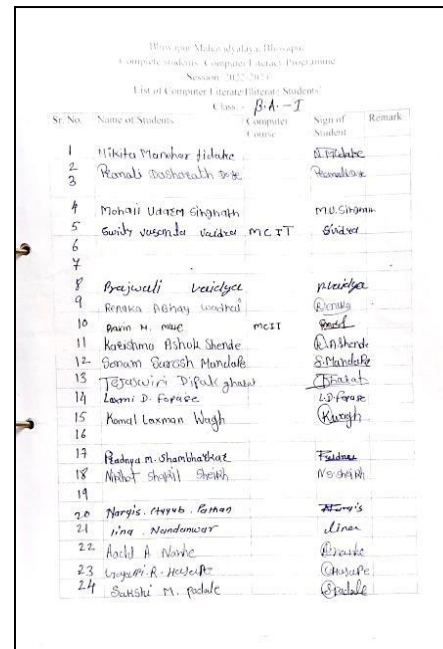 Bhiwapur Mahavidyalaya, Bhiwapur
Complete students Computer Literact Programme
Session 2022-2023
List of Computer Literate/Illiterate Students
Class - B.A.-I
Sr. No. Name of Students Computer Course Sign of Student Remark
1 Nikita Manohar
2 Pranali Dasharath
3
4 Mohani Singnath M.U.Singnath
5 Sweity Vasanta Vaidya MCIT
6
7
8 Prajwali Vaidya P.Vaidya
9 Renuka Abhay Renuka
10 Pravin M. MCIT
11 Karishma Ashok Shende K.A.Shende
12 Sonam Suresh Mandale S.Mandale
13 Tejaswini Dipak
14 Laxmi D. Forase L.D.Forase
15 Komal Laxman Wagh Kwagh
16
17 Pradnya M. Shambharkar
18 Nikhat Shakil Sheikh N.S.Sheikh
19
20 Nargis Pathan Nargis
21 lina Nandanwar lina
22 A
23 R.
24 Sakshi M. Padale SPadale